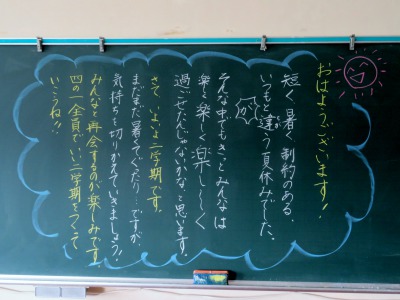 おはようございます!
短く、暑く、制約のある
いつもと違う夏休みでした。
そんな中でもきっとみんなは
楽しく楽しく楽し〜く
過ごせたんじゃないかな、と思います。
さて、いよいよ二学期です。
まだまだ暑くてぐったり…ですが
気持ちを切りかえていきましょう!
みんなと再会するのが楽しみです。
四の一全員でいい二学期をつくって
いこうね!!